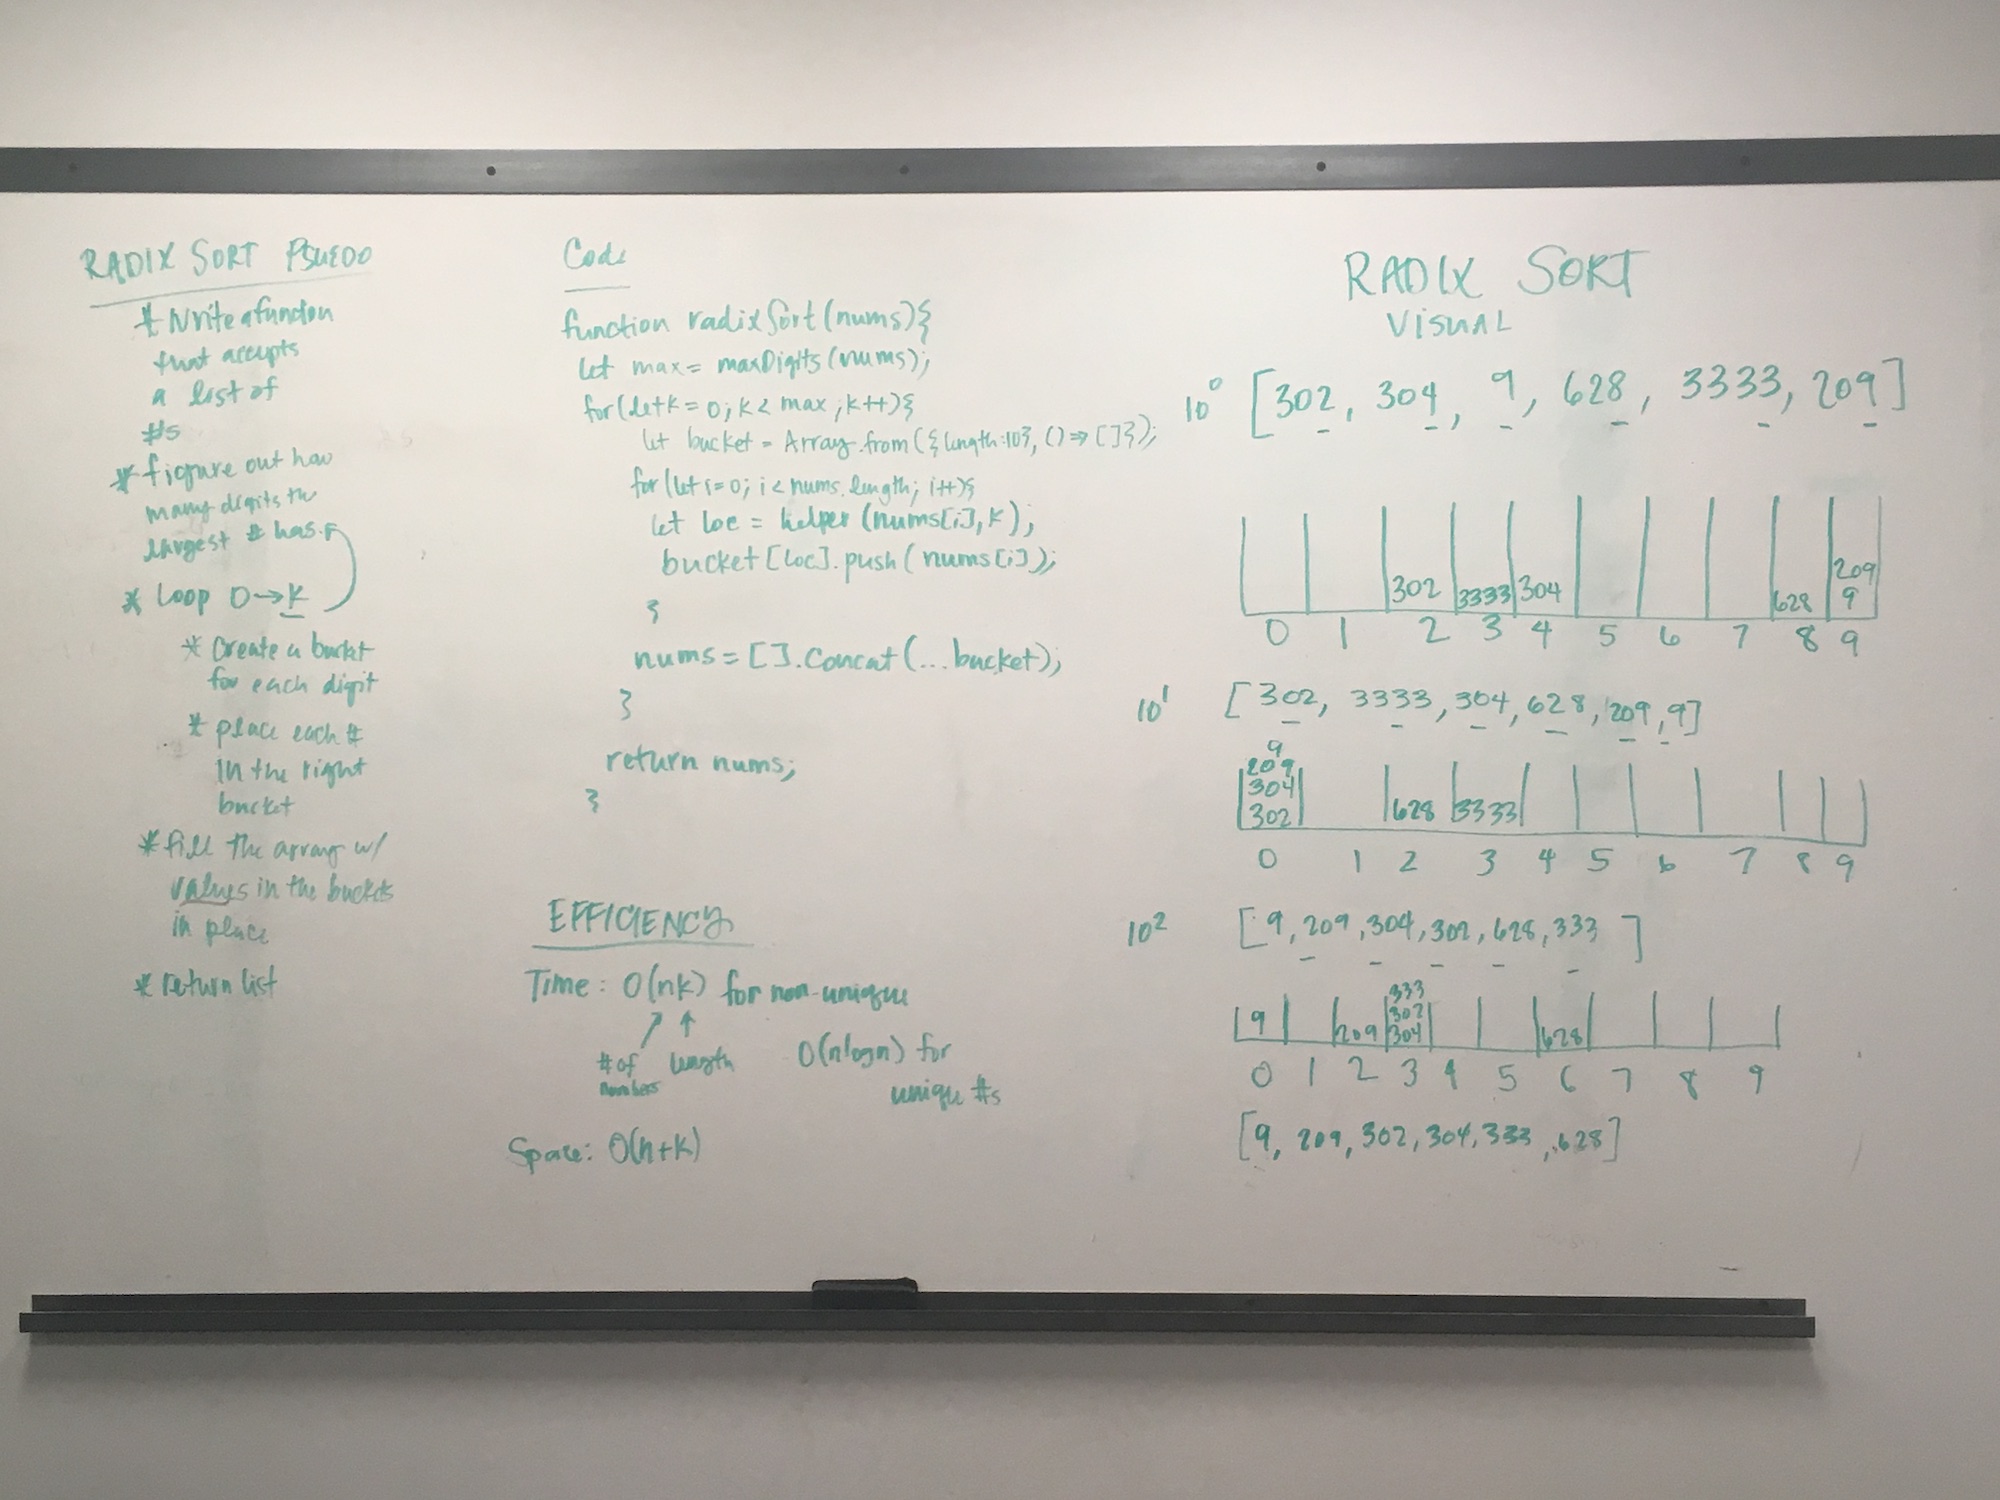 RADIX SORT PSUEDO
* Write a function
that accepts
a list of
#s
* figure out how
many digits the
largest # has.
* loop 0→K
* Create a bucket
for each digit
* place each #
in the right
bucket
* fill the array w/
values in the buckets
in place
* return list
Code
function radixSort(nums){
let max = maxDigits(nums);
for(let k=0; k< max; k++){
let bucket = Array.from({length:10}, () => []});
for(let i=0; i< nums.length; i++){
let loc = helper(nums[i], k);
bucket[loc].push(nums[i]);
}
nums = [].concat(...bucket);
}
return nums;
}
EFFICIENCY
Time: O(nk) for non-unique
# of length
numbers
O(nlogn) for
unique #s
Space: O(n+k)
RADIX SORT
VISUAL
10⁰ [302, 304, 9, 628, 3333, 209]
209
302 3333 304 628 9
0 1 2 3 4 5 6 7 8 9
10¹ [302, 3333, 304, 628, 209, 9]
9
209
304
302 628 3333
0 1 2 3 4 5 6 7 8 9
10² [9, 209, 304, 302, 628, 333 ]
333
302
9 209 304 628
0 1 2 3 4 5 6 7 8 9
[9, 209, 302, 304, 333, 628]